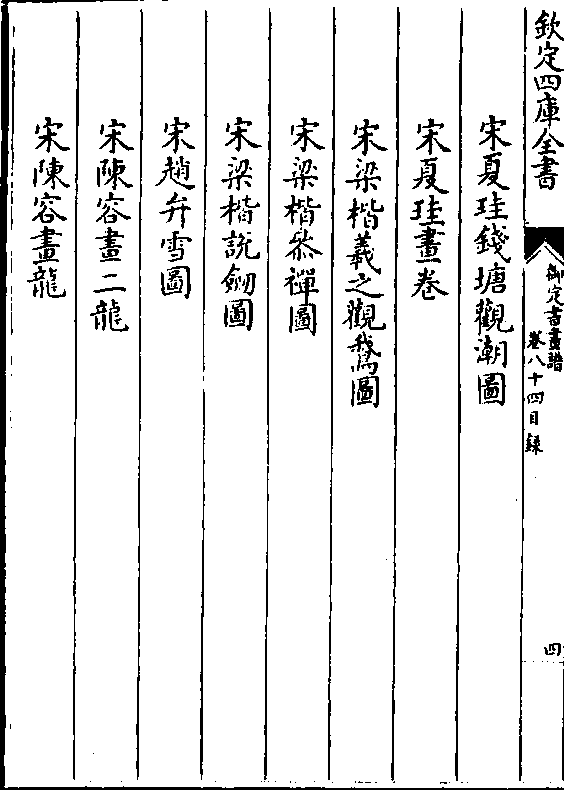 欽定四庫全書
御定書畫譜
卷八十四目錄
四
宋夏珪錢塘觀潮圖
宋夏珪畫卷
宋梁楷羲之觀鵝圖
宋梁楷叅禪圖
宋梁楷說劒圖
宋趙弁雪圖
宋陳容畫二龍
宋陳容畫龍